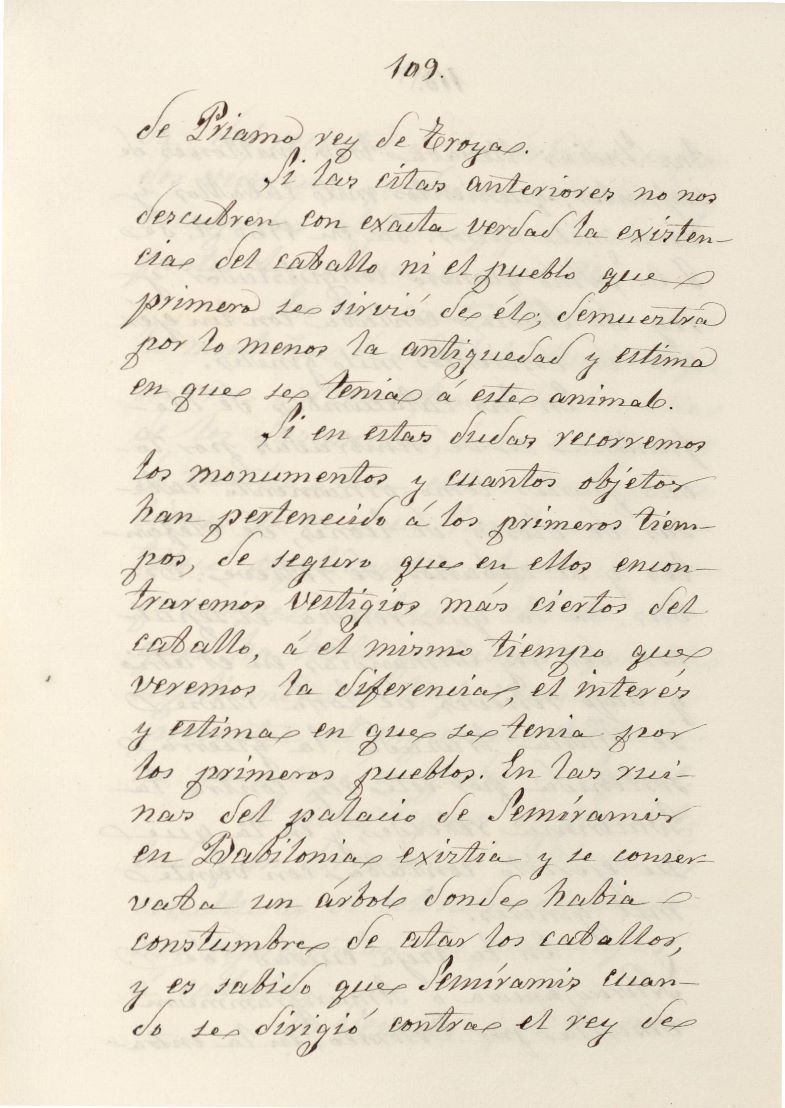 109.
de Priamo rey de Troya.
Si las citas anteriores no nos
descubren con exacta verdad la existen-
cia del caballo ni el pueblo que
primero se sirvió de él; demuestra
por lo menos la antiguedad y estima
en que se tenia á este animal.
Si en estas dudas recorremos
los monumentos y cuantos objetos
han pertenecido á los primeros tiem-
pos, de seguro que en ellos encon-
traremos vestigios más ciertos del
caballo, á el mismo tiempo que
veremos la diferencia, el interés
y estima en que se tenia por
los primeros pueblos. En las rui-
nas del palacio de Semíramis
en Babilonia existia y se conser-
vaba un árbol donde habia
constumbre de atar los caballos,
y es sabido que Semíramis cuan-
do se dirigió contra el rey de